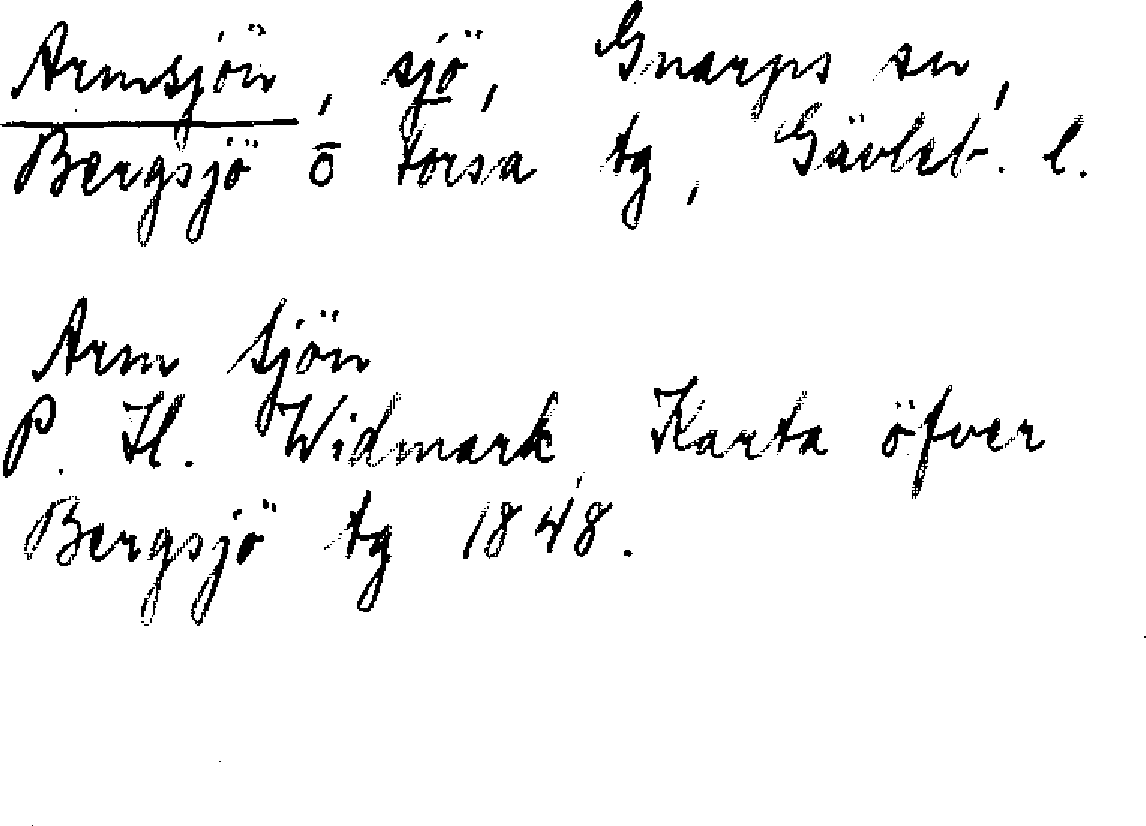 Armsjön, sjö, Gnarps sn,
Bergsjö o Forsa tg, Gävleb. l.
Arm Sjön
P. H. Widmark, Karta öfver
Bergsjö tg 1848.